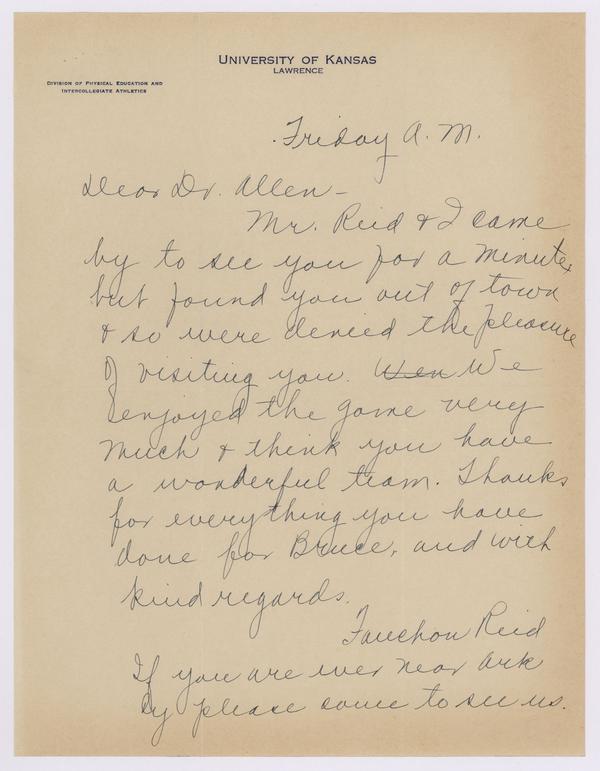 UNIVERSITY OF KANSAS
LAWRENCE
DIVISION OF PHYSICAL EDUCATION AND
INTERCOLLEGIATE ATHLETICS
Friday A. M.
Dear Dr. Allen -
Mr. Reid & I came
by to see you for a minute,
but found you out of town
& so were denied the pleasure
of visiting you. Wen We
enjoyed the game very
much & think you have
a wonderful team. Thanks
for everything you have
done for Bruce, and with
kind regards.
Fanchon Reid
If you are ever near Ark
City please come to see us.